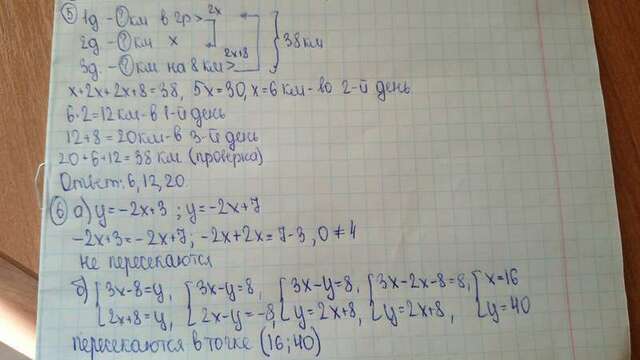 5) 1д - ? км в 2р > 2x
2д - ? км x
3д. - ? км на 8 км > 2x+8
38 км
x+2x+2x+8=38, 5x=30, x=6 км - во 2-й день
6·2=12км - в 1-й день
12+8=20км - в 3-й день
20+6+12=38 км (проверка)
Ответ: 6, 12, 20.
6) а) y=-2x+3; y=-2x+7
-2x+3=-2x+7; -2x+2x=7-3, 0≠4
не пересекаются
б) {3x-8=y, {3x-y=8, {3x-y=8, {3x-2x-8=8, {x=16
{2x+8=y, {2x-y=-8, {y=2x+8, {y=2x+8, {y=40
пересекаются в точке (16;40)